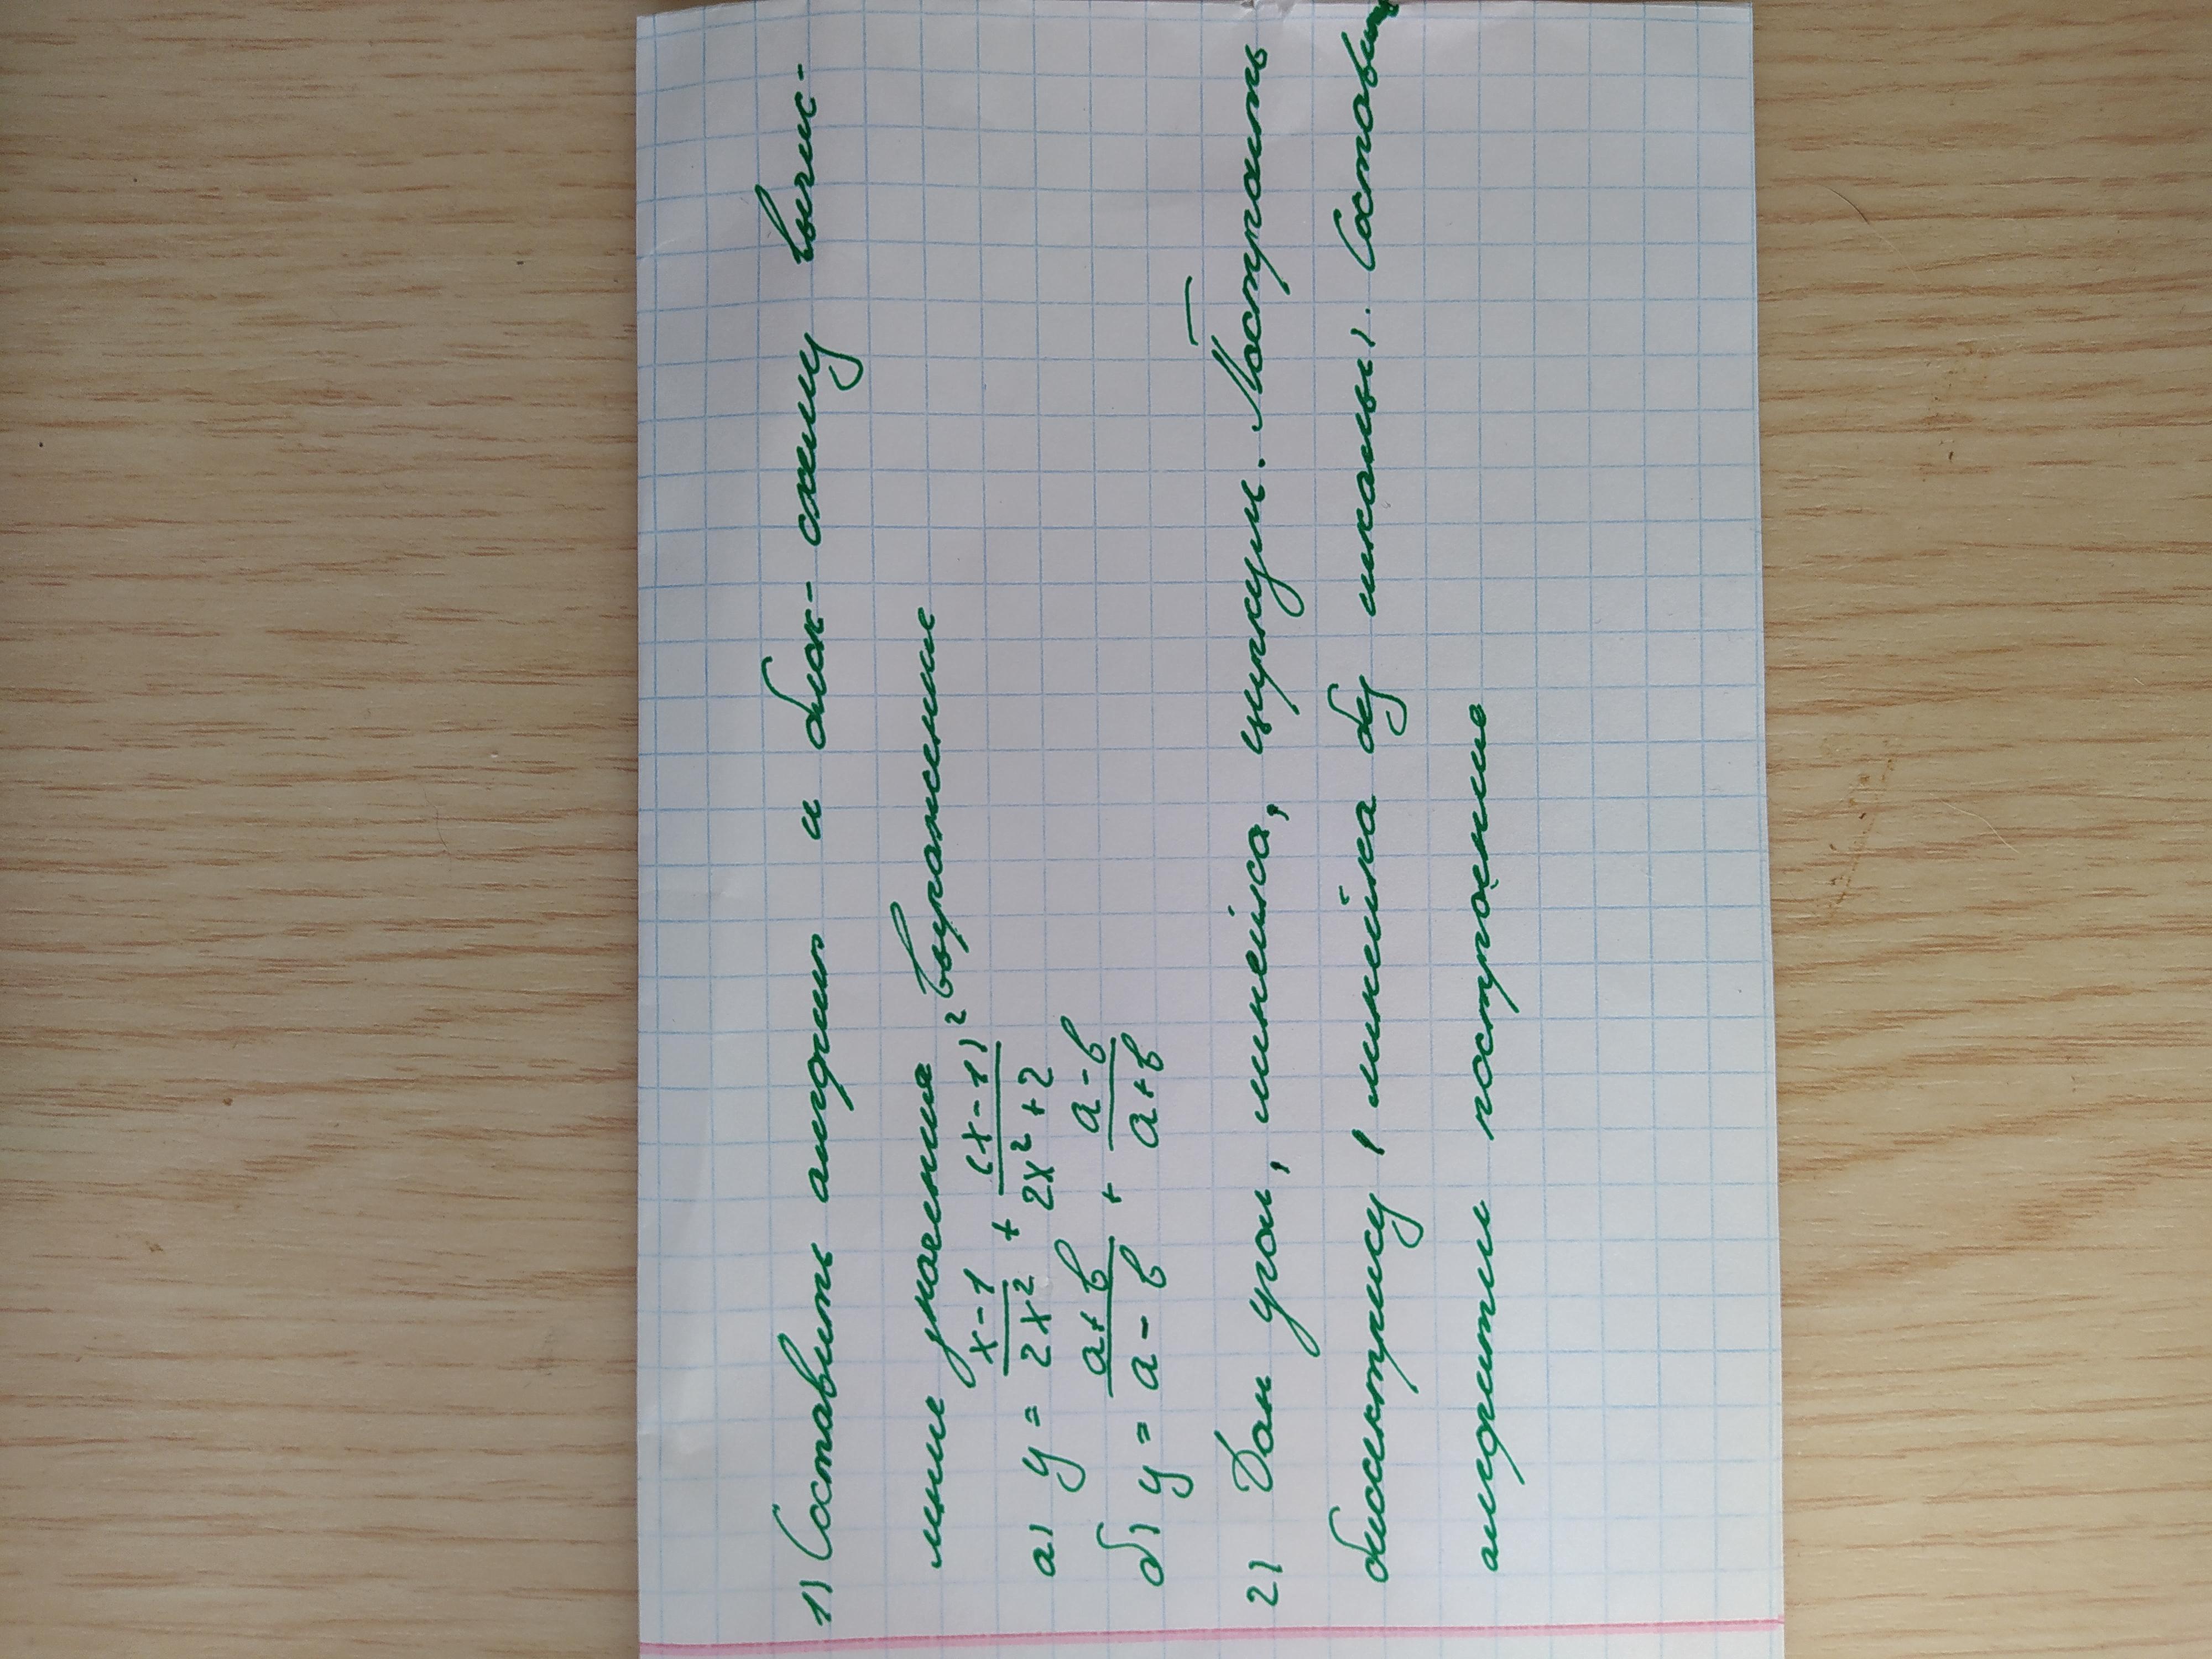 1) Составить алгоритм и блок-схему вычис-
ления значения выражение
а) y = (x-1)/(2x²) + (x-1)²/(2x²+2)
б) y = (a+b)/(a-b) + (a-b)/(a+b)
2) Дан угол, линейка, циркуль. Построить
биссектрису, линейка без шкалы. Составить
алгоритм построение